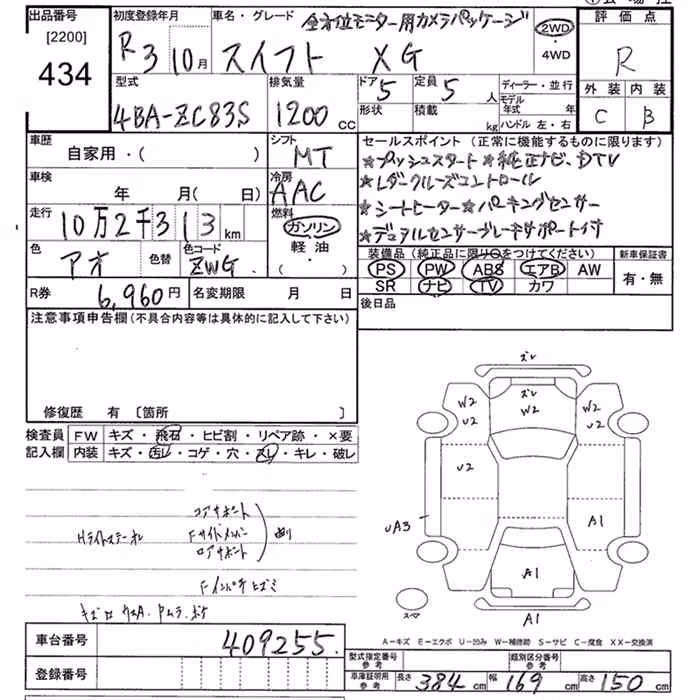 出品番号
[2200]
434
初度登録年月
R 3 10月
車名・グレード
全方位モニター用カメラパッケージ
スイフト XG
2WD
・
4WD
評価点
R
外装 内装
C B
型式
4BA-ZC83S
排気量
1200 cc
ドア 5
形状
定員 5 人
積載 kg
ディーラー・並行
モデル年式 年
ハンドル 左・右
車歴
自家用・( )
シフト
MT
車検
年 月(日)
冷房
AAC
走行
10万2千313km
燃料
ガソリン
軽油
・( )
色
アオ
色替
色コード
ZWG.
R券 6,960円
名変期限 月 日
セールスポイント (正常に機能するものに限ります)
★プッシュスタート★純正ナビ、DTV
★レダークルーズコントロール
★シートヒーター★パーキングセンサー
★デュアルセンサーブレーキサポート付
装備品(純正品に限り○をつけてください)
PS PW ABS エアB AW
SR ナビ TV カワ
新車保証書
有・無
後日品
注意事項申告欄(不具合内容等は具体的に記入して下さい)
修復歴 有 〔箇所 〕
検査員
記入欄
FW キズ・飛石・ヒビ割・リペア跡・×要
内装 キズ・汚レ・コゲ・穴・スレ・キレ・破レ
コアサポート
Hライトステーズレ Fサイドメンバー 曲り
ロアサポート
Fインパネヒズミ
ズレ
W2 W2 W2
U2 U2
U2
UA3
A1
A1
A1
スペア
A-キズ E-エクボ U-凹み W-補修跡 S-サビ C-腐食 XX-交換済
車台番号 409255.
登録番号
型式指定番号
参考
類別区分番号
参考
車庫証明用
参考
長さ 384 cm 幅 169 cm 高さ 150 cm